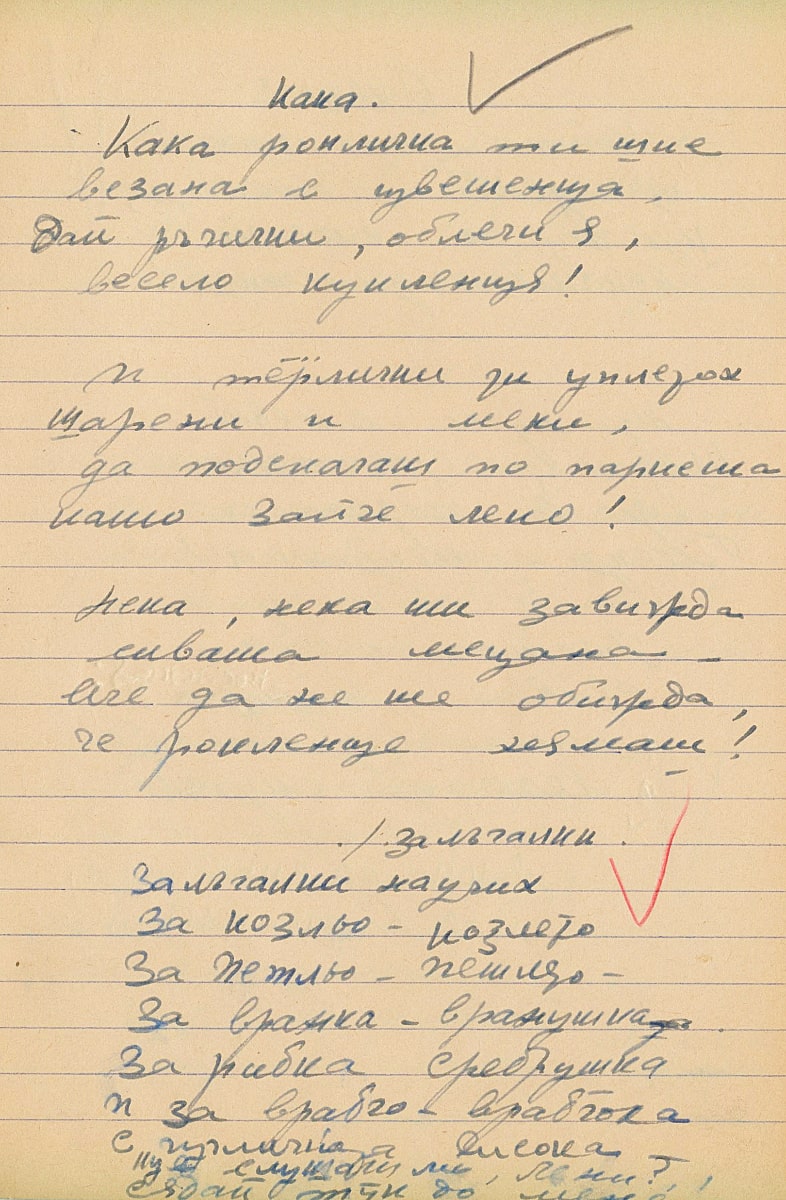 Кака.
Кака рокличка ти ший
везана с цветенца,
Дай ръчички, облечи я,
весело кукленце!
И терлички ти уплетох
шарени и меки,
да подскачаш по паркета
като зайче леко!
Нека, нека ти завижда
сивата мецана –
Аче да не те обижда,
че рокленце нямаш!
Залъгалки.
Залъгалки научих
За козльо – козлето
За Петльо – петлето –
За вранка – вранушка
За рибка сребрушка
и за врабчо – врабчока
с качулка висока –
ще слушаш ли, Лени?
сядай тук до мене